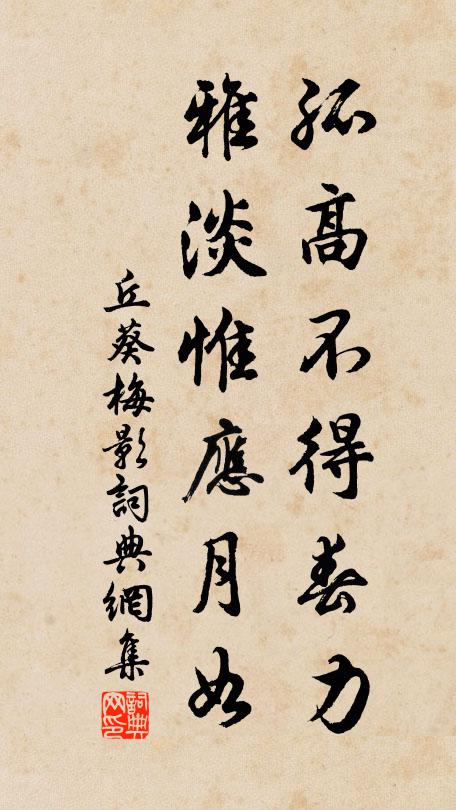 孤高不得春力
雅淡惟應月如
丘葵梅影詞典網集
詞典网印